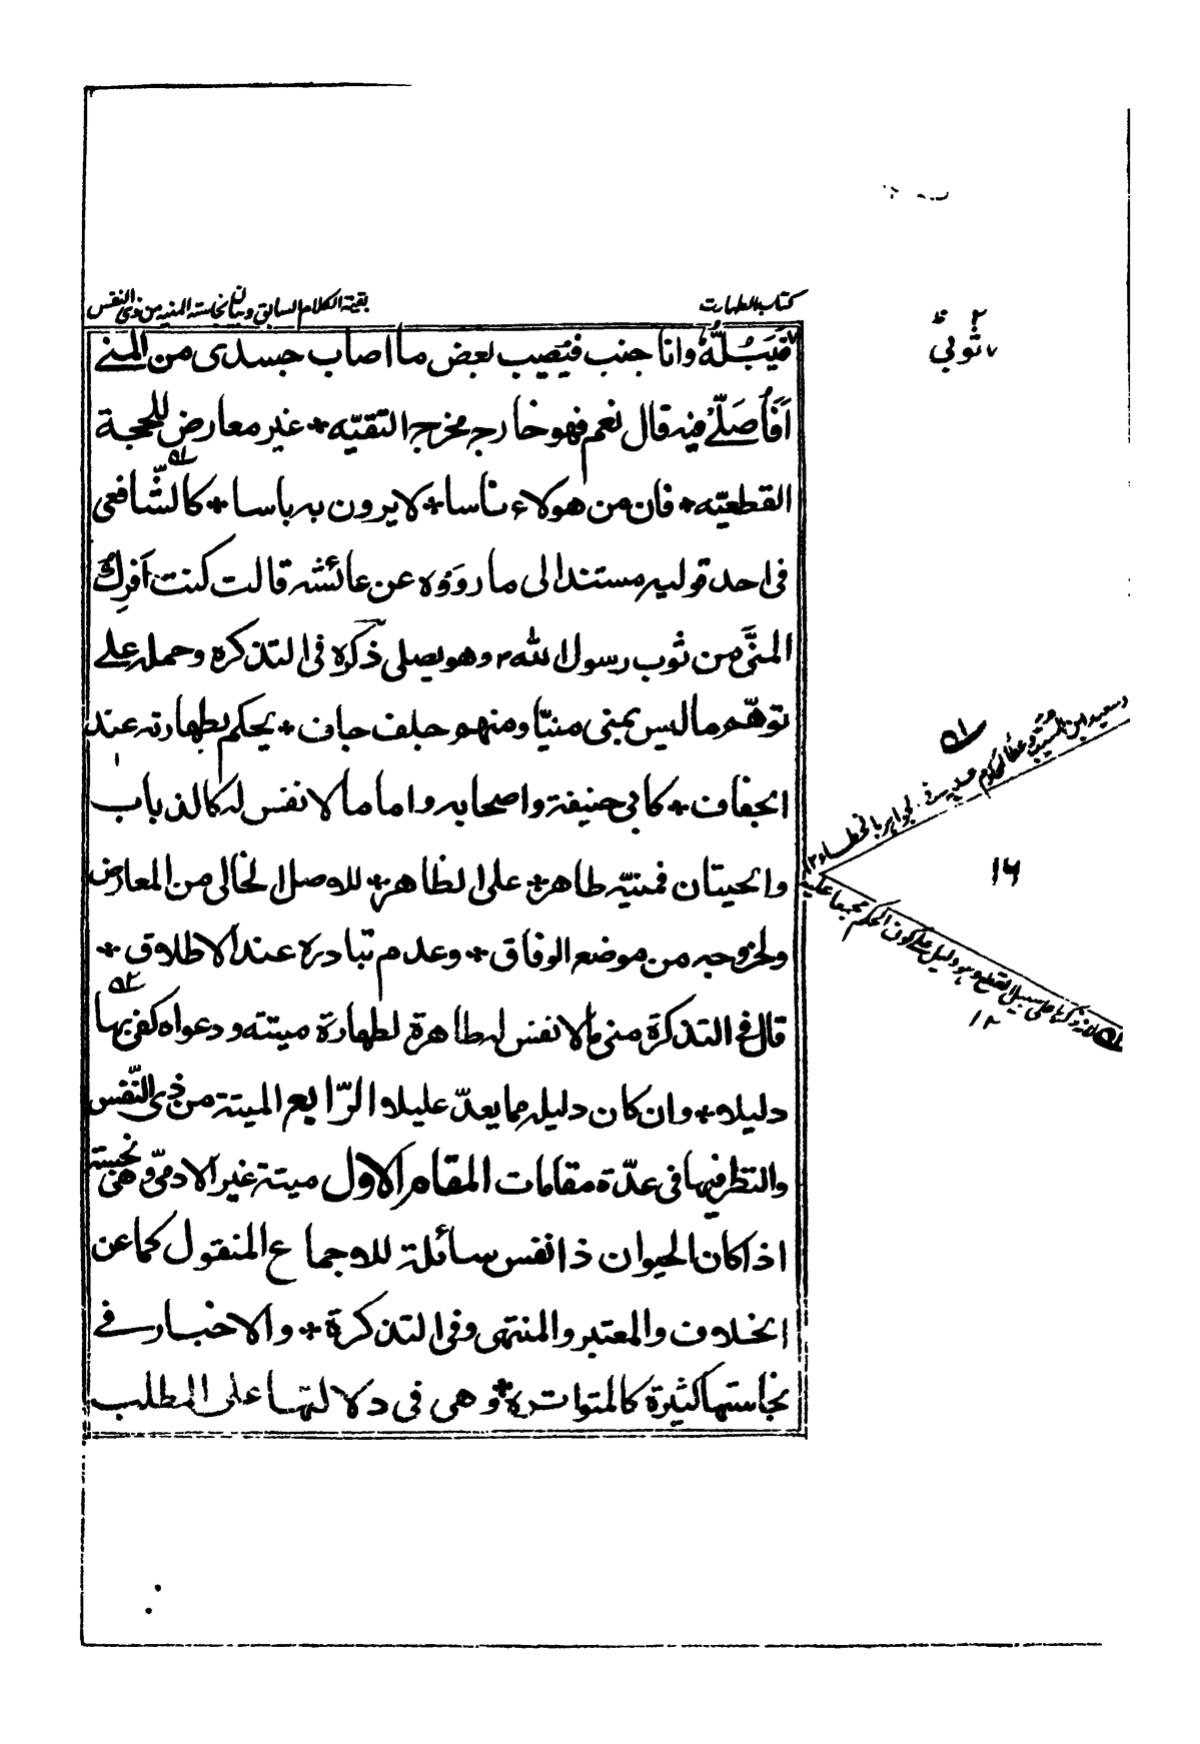 كتاب الطهارت
بقية الكلام السابق وبيان نجاسة الميتة من ذى النفس
فَيَبُلُّهُ وانا جنب فيصيب بعض ما اصاب جسدى من المنے
اَفَاُصَلّے فيه قال نعم فهو خارج مخرج التقيّه * غير معارض للحجة
القطعيّه * فان من هولاء ناسا * لا يرون به باسا * كالشّافعى
فى احد قوليه مستندا الى ما رووه عن عائشه قالت كنت اَفرِكُ
المنىَّ من ثوب رسول الله ؐ وهو يصلى ذكره فى التذكره وحمله علے
توهّم ما ليس بمنى منيّا ومنهم جلف جاف * يحكم بطهارته عند
الجفاف * كابى حنيفة واصحابه واما ما لا نفس له كالذباب
والحيتان فمنيّه طاهر * على الظاهر * للاصل الخالى من المعارض
ولخروجه من موضع الوفاق * وعدم تبادره عند الاطلاق *
قال فى التذكرة منى ما لا نفس له طاهرة لطهارة ميتته ودعواه كفى بها
دليلا * وان كان دليله مما يعدّ عليلا الرّابع الميتة من ذى النّفس
والنظر فيها فى عدّة مقامات المقام الاول ميتة غير الادمىّ وهى نجسة
اذا كان الحيوان ذا نفس سائلة للاجماع المنقول كما عن
الخلاف والمعتبر والمنتهى وفى التذكرة * والاخبار فے
نجاستها كثيرة كالمتواترة * وهى فى دلالتها على المطلب
٢ ظ
ثوبي
۵۱
وسعيد ابن المسيب
١٦
على سبيل القطع وهو دليل على كون الحكم مجمعا عليه
١٢